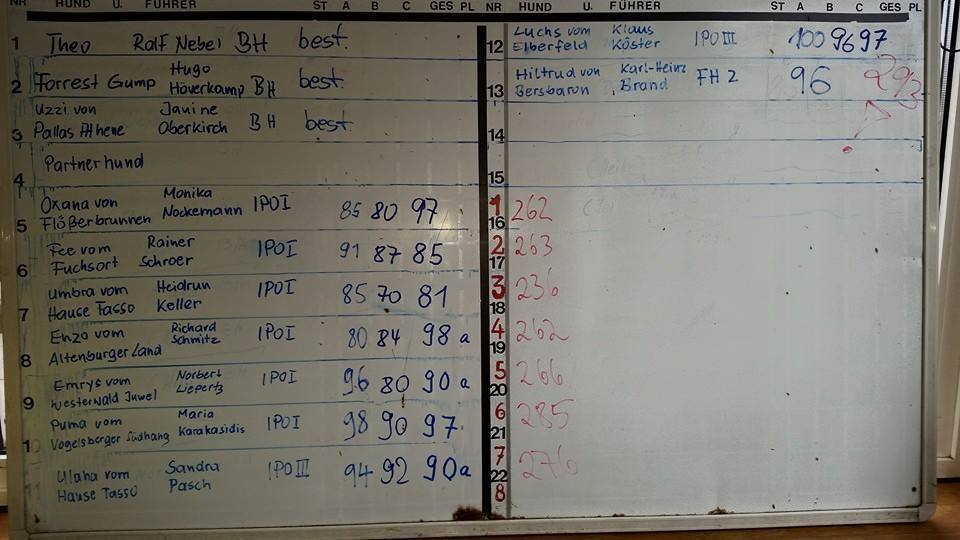 NR HUND U. FÜHRER ST A B C GES PL
1 Theo Ralf Nebel BH best.
2 Forrest Gump Hugo Höverkamp BH best.
3 Uzzi von Pallas Athene Janine Oberkirch BH best.
4 Partnerhund
5 Oxana von Flößerbrunnen Monika Nockemann IPO I 85 80 97
6 Fee vom Fuchsort Rainer Schroer IPO I 91 87 85
7 Umbra vom Hause Tasso Heidrun Keller IPO I 85 70 81
8 Enzo vom Altenburger Land Richard Schmitz IPO I 80 84 98 a
9 Emrys vom Westerwald Juwel Norbert Liepertz IPO I 96 80 90 a
10 Puma vom Vogelsberger Südhang Maria Karakasidis IPO I 98 90 97
Ulaha vom Hause Tasso Sandra Pasch IPO III 94 92 90 a
NR HUND U. FÜHRER ST A B C GES PL
12 Luchs vom Elberfeld Klaus Köster IPO III 100 96 97
13 Hiltrud von Bersbaron Karl-Heinz Brand FH 2 96 293
14
15
1 16 262
2 17 263
3 18 236
4 19 262
5 20 266
6 21 285
7 22 276
8